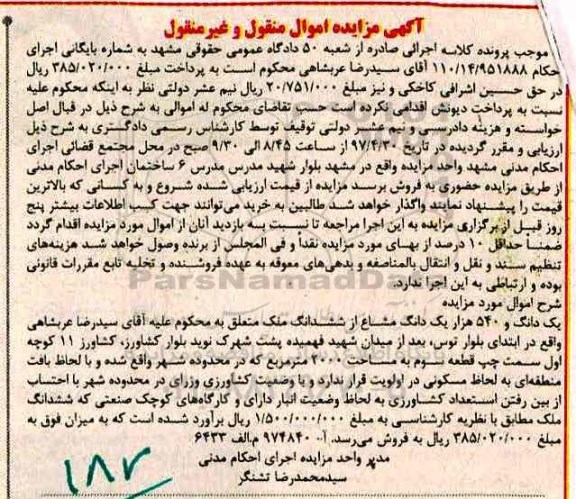 آگهی مزایده اموال منقول و غیرمنقول
موجب پرونده کلاسه اجرائی صادره از شعبه ۵۰ دادگاه عمومی حقوقی مشهد به شماره بایگانی اجرای
احکام ۱۱۰/۱۴/۹۵۱۸۸۸ آقای سیدرضا عربشاهی محکوم است به پرداخت مبلغ ۳۸۵/۰۲۰/۰۰۰ ریال
در حق حسین اشرافی کاخکی و نیز مبلغ ۲۰/۷۵۱/۰۰۰ ریال نیم عشر دولتی نظر به اینکه محکوم علیه
نسبت به پرداخت دیونش اقدامی نکرده است حسب تقاضای محکوم له اموالی به شرح ذیل در قبال اصل
خواسته و هزینه دادرسی و نیم عشر دولتی توقیف توسط کارشناس رسمی دادگستری به شرح ذیل
ارزیابی و مقرر گردیده در تاریخ ۹۷/۴/۳۰ از ساعت ۸/۴۵ الی ۹/۳۰ صبح در محل مجتمع قضائی اجرای
احکام مدنی مشهد واحد مزایده واقع در مشهد بلوار شهید مدرس مدرس ۶ ساختمان اجرای احکام مدنی
از طریق مزایده حضوری به فروش برسد مزایده از قیمت ارزیابی شده شروع و به کسانی که بالاترین
قیمت را پیشنهاد نمایند واگذار خواهد شد طالبین به خرید می‌توانند جهت کسب اطلاعات بیشتر پنج
روز قبل از برگزاری مزایده به این اجرا مراجعه تا نسبت به بازدید آنان از اموال مورد مزایده اقدام گردد
ضمنا حداقل ۱۰ درصد از بهای مورد مزایده نقدا و فی المجلس از برنده وصول خواهد شد هزینه‌های
تنظیم سند و نقل و انتقال بالمناصفه و بدهی‌های معوقه به عهده فروشنده و تخلیه تابع مقررات قانونی
بوده و ارتباطی به این اجرا ندارد.
ParsNamadData
شرح اموال مورد مزایده
یک دانگ و ۵۴۰ هزار یک دانگ مشاع از ششدانگ ملک متعلق به محکوم علیه آقای سیدرضا عربشاهی
واقع در ابتدای بلوار توس، بعد از میدان شهید فهمیده پشت شهرک نوید بلوار کشاورز، کشاورز ۱۱ کوچه
اول سمت چپ قطعه سوم به مساحت ۲۰۰ مترمربع که در محدوده شهر واقع شده و با لحاظ بافت
منطقه‌ای به لحاظ مسکونی در اولویت قرار ندارد و با وضعیت کشاورزی وزرای در محدوده شهر با احتساب
از بین رفتن استعداد کشاورزی به لحاظ وضعیت انبار دارای و کارگاه‌های کوچک صنعتی که ششدانگ
ملک مطابق با نظریه کارشناسی به مبلغ ۱/۵۰۰/۰۰۰/۰۰۰ ریال برآورد شده است که به میزان فوق به
مبلغ ۳۸۵/۰۲۰/۰۰۰ ریال به فروش می‌رسد. آ- ۹۷۴۸۴۰ م.الف ۶۴۳۳
مدیر واحد مزایده اجرای احکام مدنی
سیدمحمدرضا تشنگر
۱۸۲